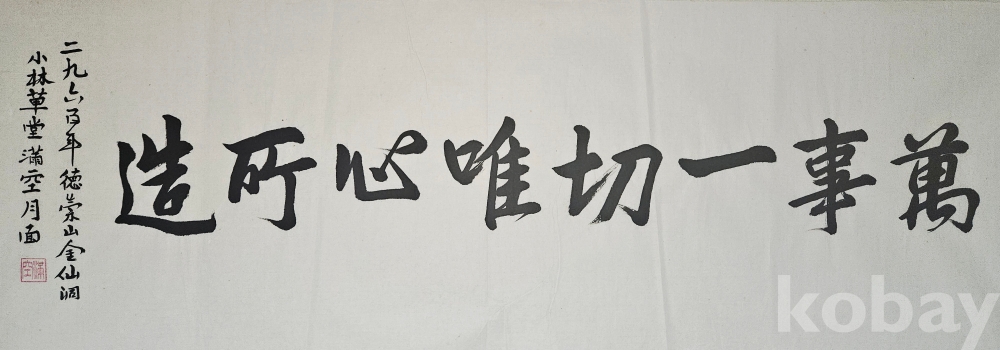 萬事一切唯心所造
二九六百年 德崇山金仙洞
小林草堂 滿空月面
滿空
kobay